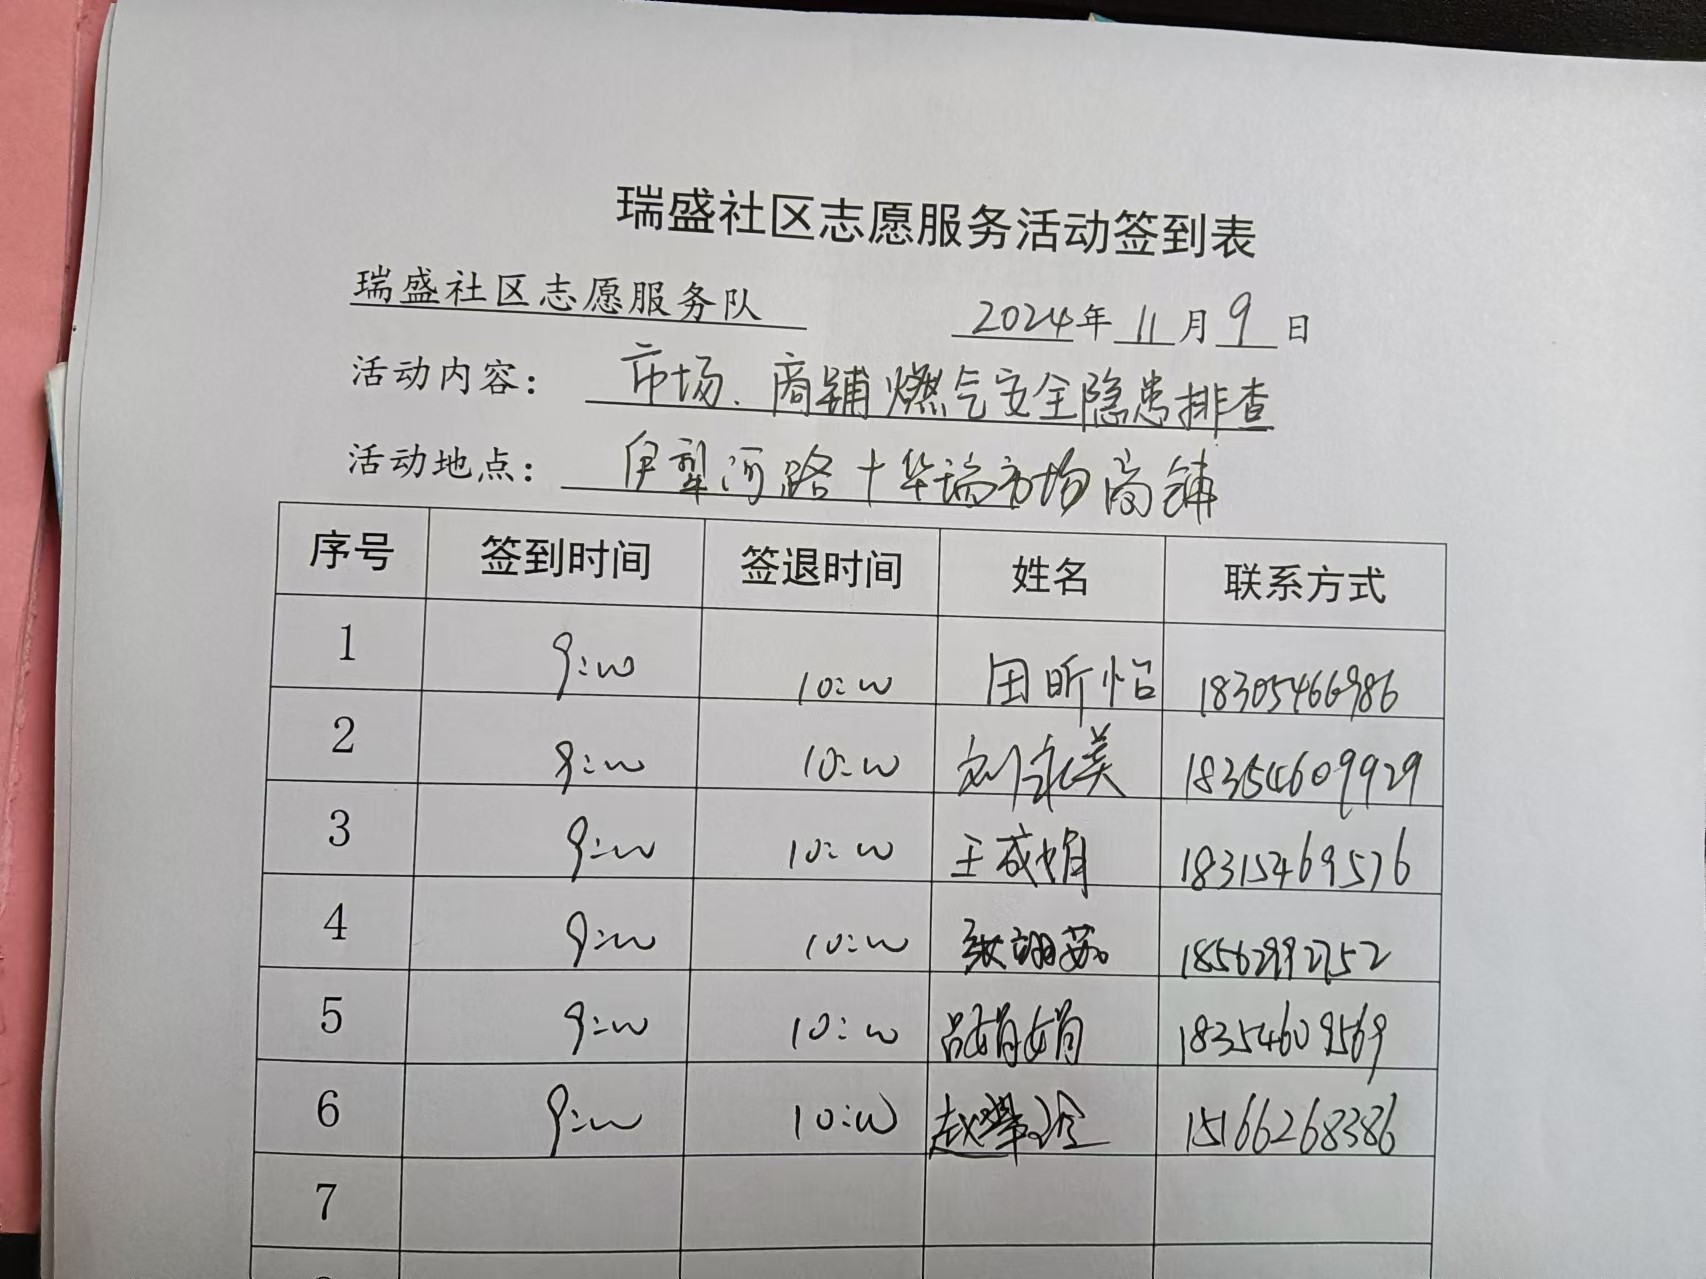 瑞盛社区志愿服务活动签到表
瑞盛社区志愿服务队 2024年 11月 9日
活动内容： 市场、商铺燃气安全隐患排查
活动地点： 伊犁河路十华瑞市场商铺
序号 签到时间 签退时间 姓名 联系方式
1 9:00 10:00 田昕怡 18305466986
2 9:00 10:00 刘永美 18354609929
3 9:00 10:00 王成娟 18315469576
4 9:00 10:00 张翊茹 18562992752
5 9:00 10:00 吕娟娟 18354609569
6 9:00 10:00 赵 15166268386
7